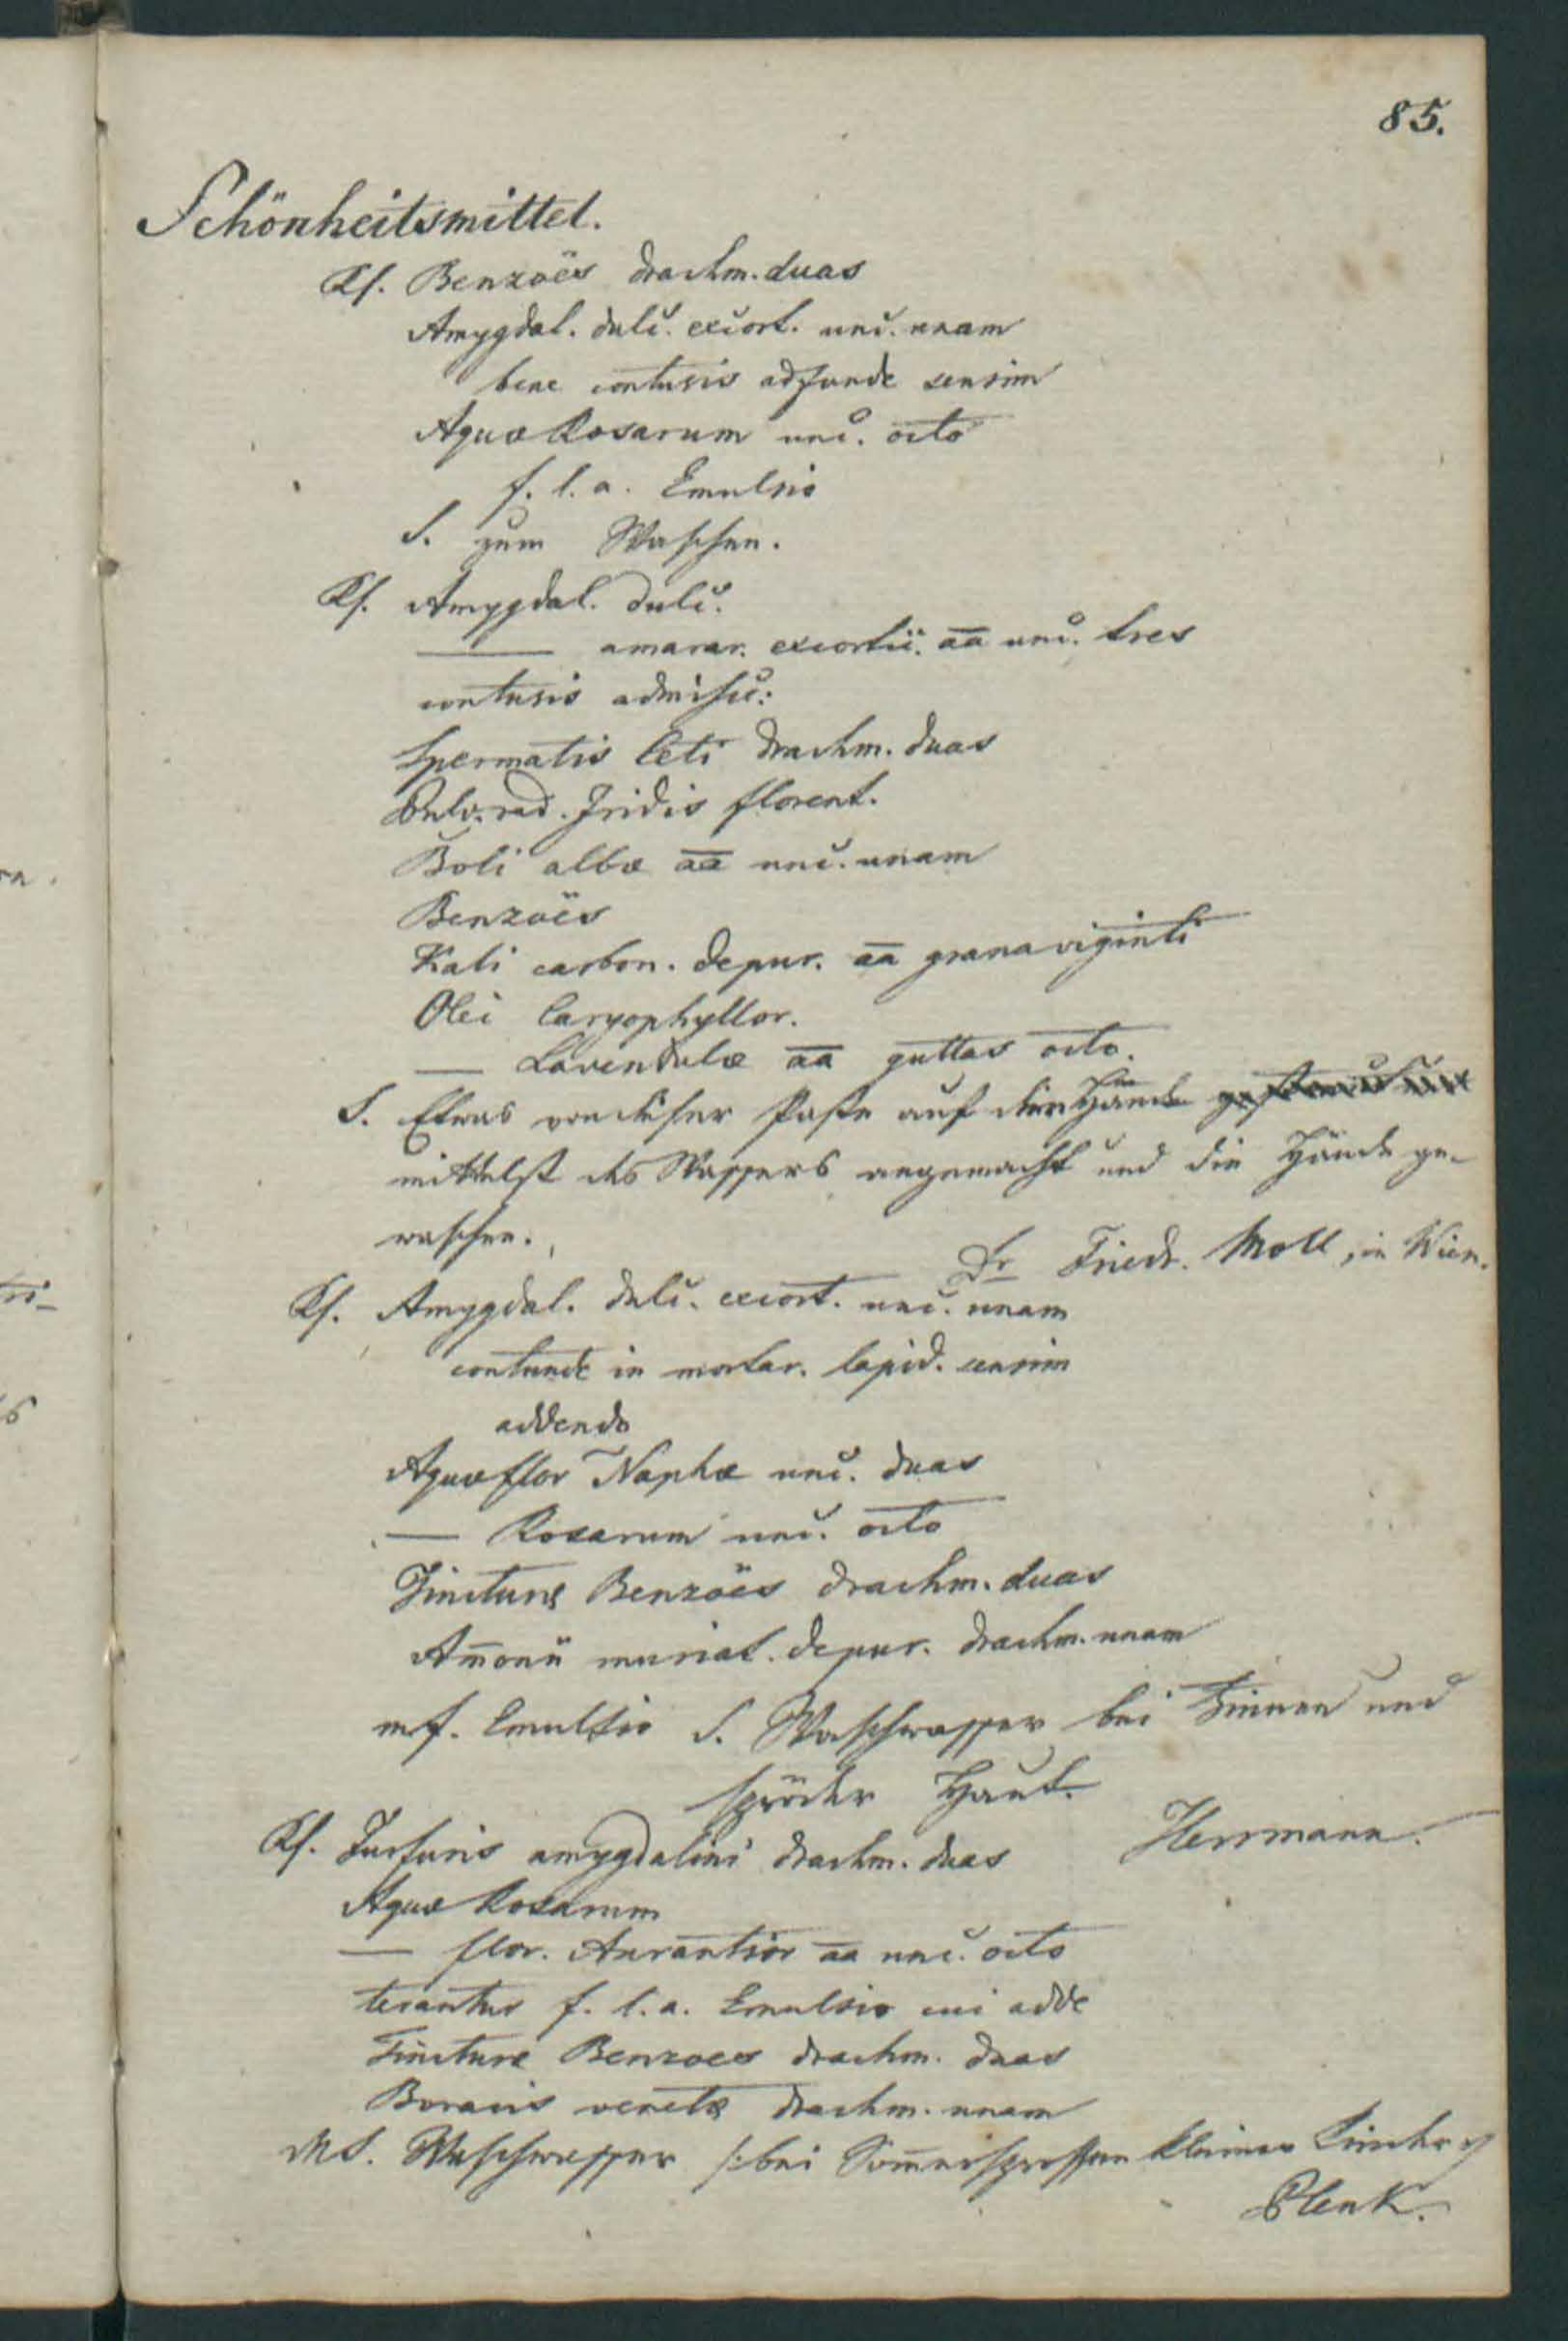 85.
Schönheitsmittel.
Rf. Benzoës drachm. duas
Amygdal. dulc. excort. unc. unam
bene contusis adfunde sensim
Aquæ Rosarum unc. octo
f. l. a. Emulsio
S. zum Waschen.
Rf. Amygdal. dulc.
—— amarar. excortic. aa unc. tres
contusis admisc:
Spermatis Ceti drachm. duas
Pulv. rad. Iridis florent.
Boli albæ aa unc. unam
Benzoës
Kali carbon. depur. aa grana viginti
Olei Caryophyllor.
— Lavendulæ aa guttas octo.
S. Etwas von dieser Paste auf die Hände
mittelst des Wassers angemacht und die Hände ge-
waschen.
Dr Friedr. Moll, in Wien.
Rf. Amygdal. dulc. excort. unc. unam
contunde in mortar. lapid. sensim
addendo
Aquæ flor Naphæ unc. duas
— Rosarum unc. octo
Tincturæ Benzoës drachm. duas
Am̅onii muriat. depur. drachm. unam
m f. Emulsio S. Waschwasser bei Finnen und
spröder Haut.
Herrmann.
Rf. Furfuris amygdalini drachm. duas
Aquæ Rosarum
— flor. Aurantior aa unc. octo
terantur f. l. a. Emulsio cui adde
Tincturæ Benzoes drachm. duas
Boracis venetæ drachm. unam
MS. Waschwasser /: bei Som̅ersprossen kleiner Kinder :/
Plenk.